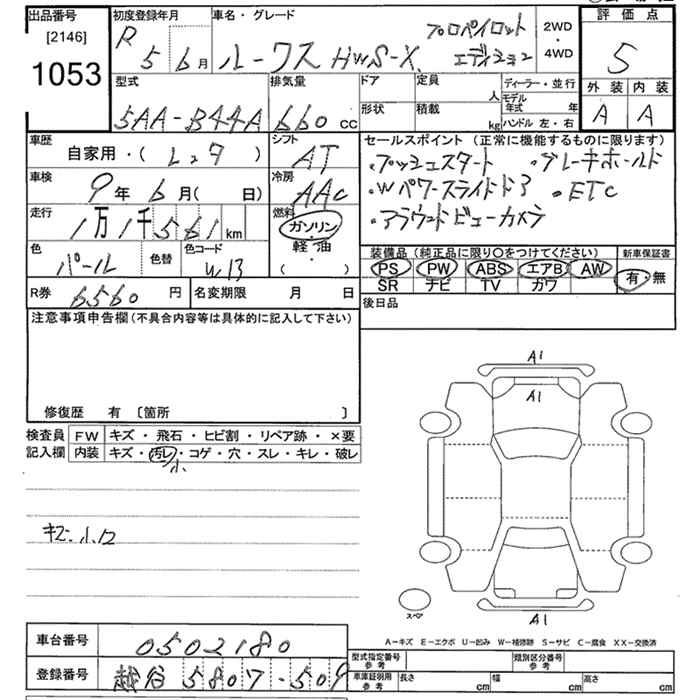 出品番号
[2146]
1053
初度登録年月
R 5 6月
車名・グレード
ルークス HWS-X プロパイロット
エディション
2WD
・
4WD
評価点
5
外装 内装
A A
型式
5AA-B44A
排気量
660 cc
ドア
形状
定員
人
積載
kg
ディーラー・並行
モデル年式 年
ハンドル 左・右
車歴
自家用・( レンタ )
シフト
AT
車検
9年 6月( 日)
冷房
AAC
走行
1万1千561km
燃料
ガソリン
軽・油
( )
色
パール
色替
色コード
W13
R券 6560 円
名変期限 月 日
セールスポイント(正常に機能するものに限ります)
・プッシュスタート ・ブレーキホールド
・Wパワースライドドア ・ETC
・アラウンドビューカメラ
装備品(純正品に限り〇をつけてください)
PS PW ABS エアB AW
SR ナビ TV カワ
新車保証書
有・無
後日品
注意事項申告欄(不具合内容等は具体的に記入して下さい)
修復歴 有 〔箇所 〕
検査員
記入欄
FW キズ・飛石・ヒビ割・リペア跡・×要
内装 キズ・汚レ・コゲ・穴・スレ・キレ・破レ
小
キズ小口
A1
A1
A1
スペア
A-キズ E-エクボ U-凹み W-補修跡 S-サビ C-腐食 XX-交換済
車台番号 0502180
登録番号 越谷 580 ワ・509
型式指定番号
参考
類別区分番号
参考
車庫証明用
参考
長さ cm
幅 cm
高さ cm